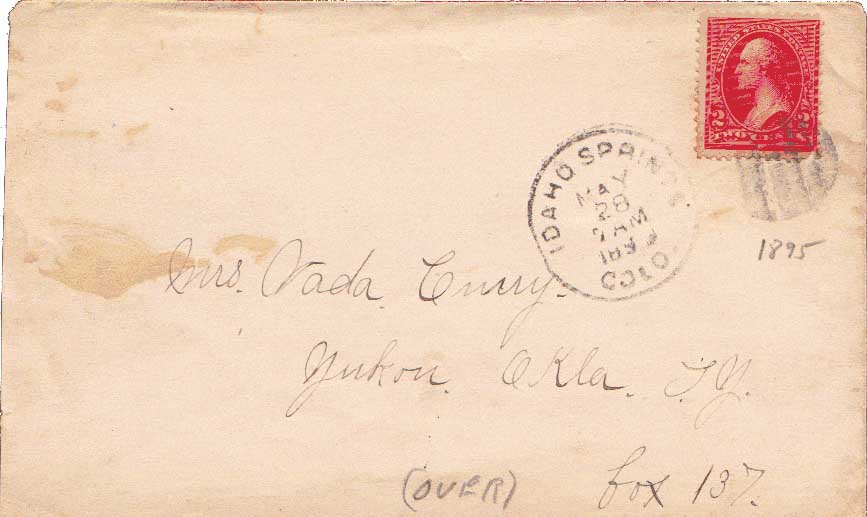 UNITED STATES POSTAGE
2 2
TWO CENTS
IDAHO SPRINGS
MAY
28
AM
COLO.
1895
Mrs. Vada Curry.
Yukon. Okla. T.Y.
(OVER) box 137.